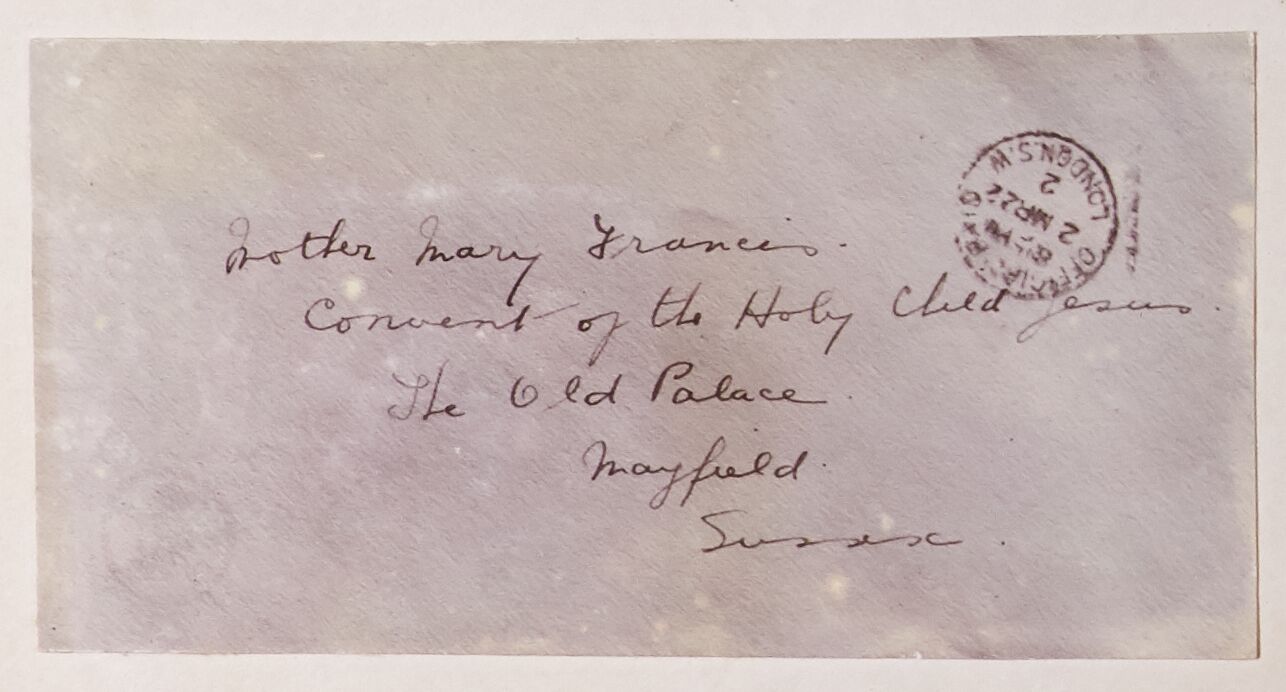 Mother Mary Francis.
Convent of the Holy Child Jesus.
The Old Palace.
Mayfield.
Sussex.
LONDON.S.W.
2
2 MR 22
OFFICIAL PAID